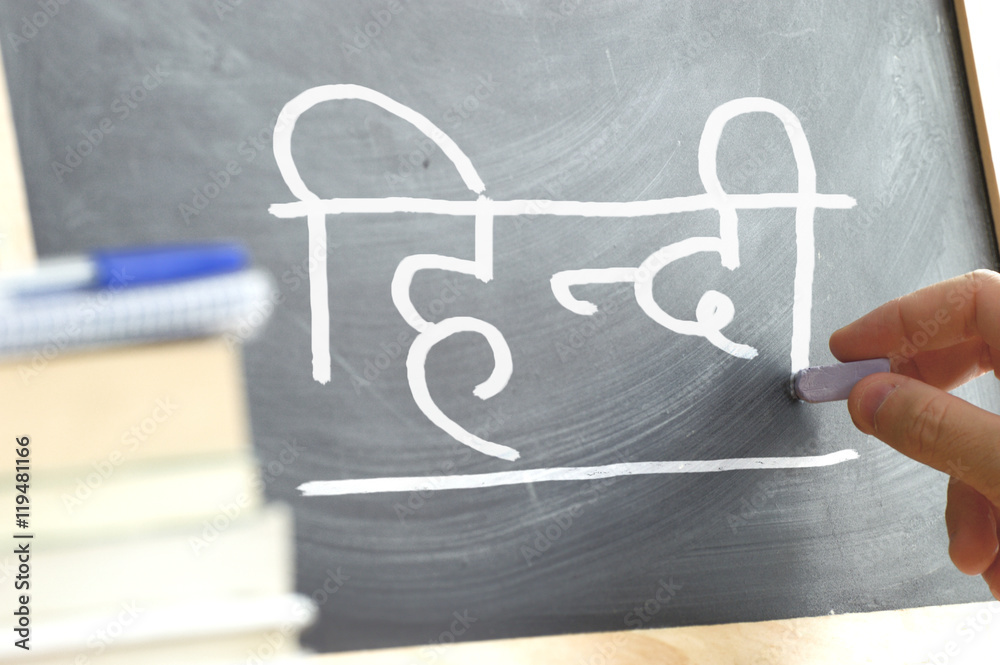 हिन्दी
Adobe Stock | #119481166